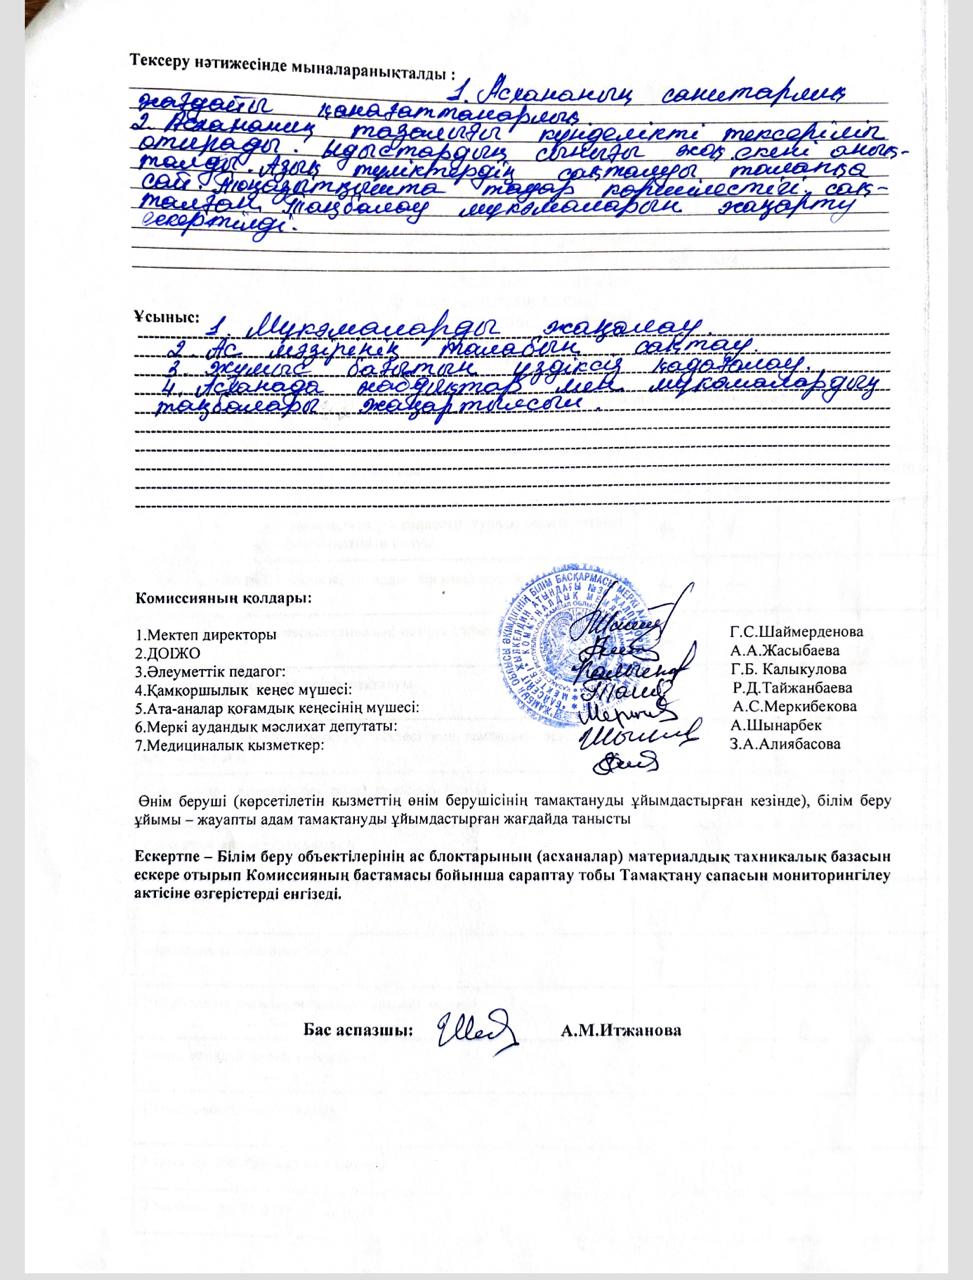 Тексеру нәтижесінде мыналаранықталды :
1. Асхананың санитарлық
жағдайы қанағаттанарлық.
2. Асхананың тазалығы күнделікті тексеріліп
отырады. Ыдыстардың сынығы жоқ екені анық-
талды. Азық түліктердің сақталуы талапқа
сай. Тоңазытқышта тауар көршілестігі сақ-
талған. Таңбалау мүкәмаларын жаңарту
ескертілді.
Ұсыныс:
1. Мукәмаларды жаңалау.
2. Ас мәзірінің талабын сақтау.
3. Жұмыс бағытын үздіксіз қадағалау.
4. Асханада жабдықтар мен мукәмалардың
таңбалары жаңартылсын.
Комиссияның қолдары:
1.Мектеп директоры Г.С.Шаймерденова
2.ДОІЖО А.А.Жасыбаева
3.Әлеуметтік педагог: Г.Б. Калыкулова
4.Қамкоршылық кеңес мүшесі: Р.Д.Тайжанбаева
5.Ата-аналар қоғамдық кеңесінің мүшесі: А.С.Меркибекова
6.Меркі аудандық мәслихат депутаты: А.Шынарбек
7.Медициналық қызметкер: З.А.Алиябасова
Өнім беруші (көрсетілетін қызметтің өнім берушісінің тамақтануды ұйымдастырған кезінде), білім беру
ұйымы – жауапты адам тамақтануды ұйымдастырған жағдайда танысты
Ескертпе – Білім беру объектілерінің ас блоктарының (асханалар) материалдық тахникалық базасын
ескере отырып Комиссияның бастамасы бойынша сараптау тобы Тамақтану сапасын мониторингілеу
актісіне өзгерістерді енгізеді.
Бас аспазшы: А.М.Итжанова